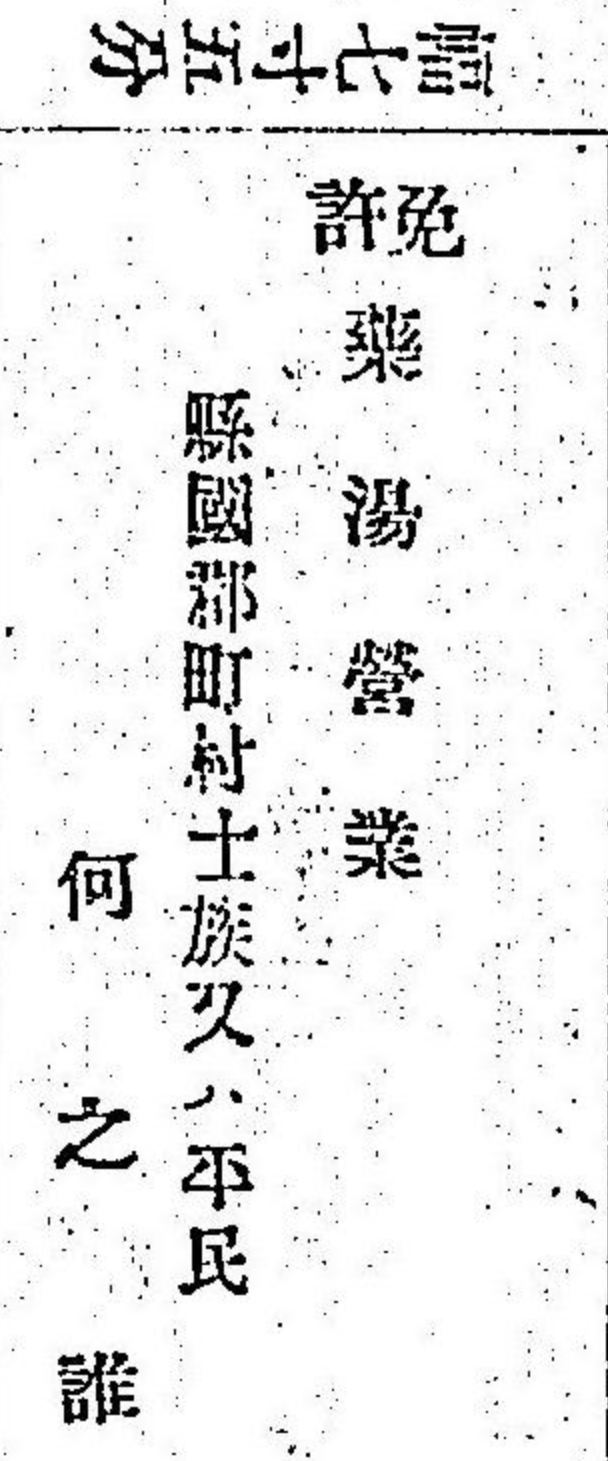 幅七寸五分
免許
藥湯營業
縣國郡町村士族又ハ平民
何之誰